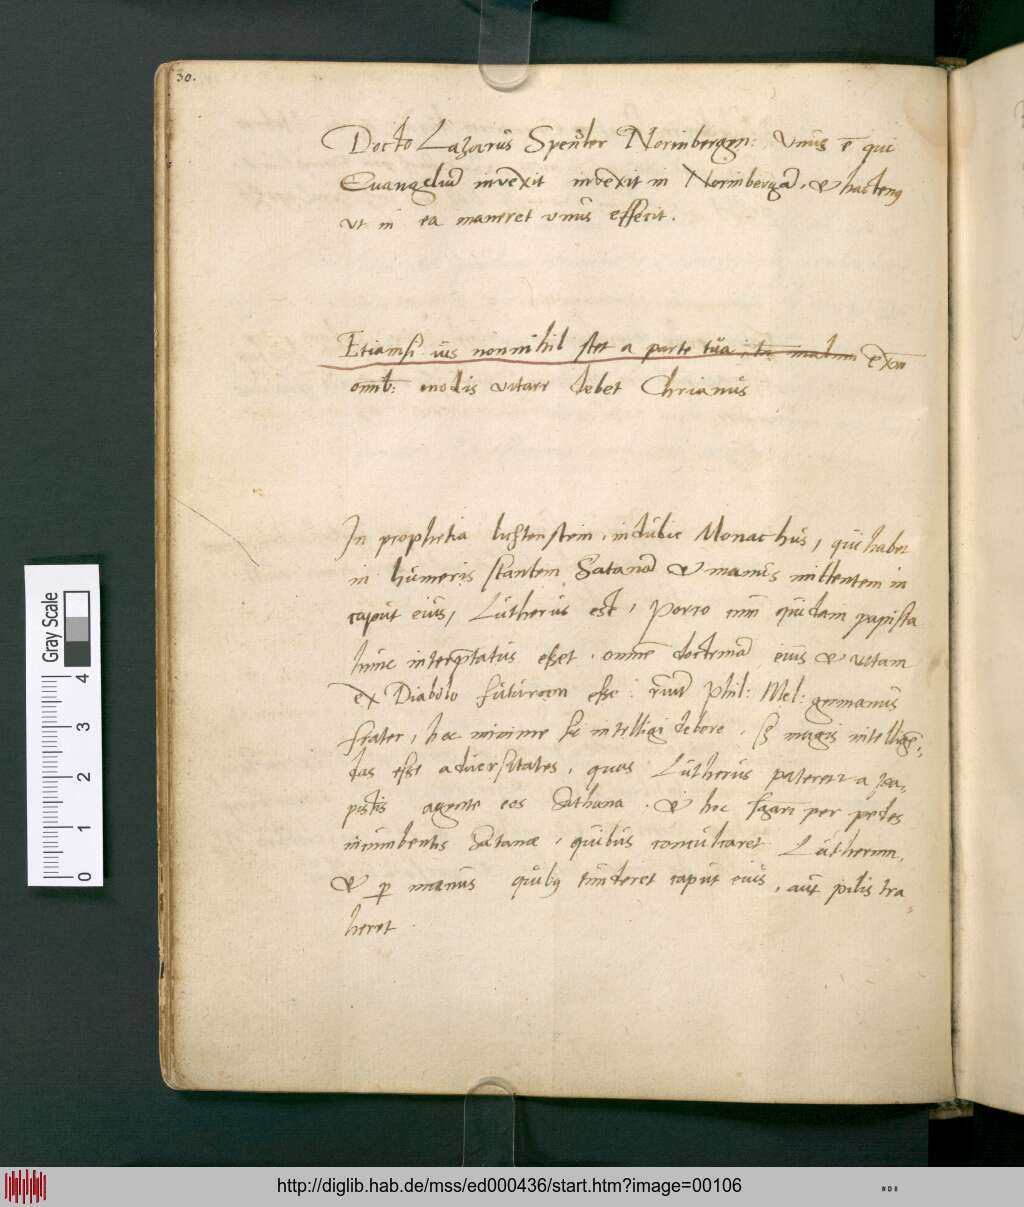 30.
Docto Lazarus Spenler Norinbergen: Unus ē qui
Euangeliū invexit invexit in Norinbergā, & hactenq
ut in ea maneret unus effecit.
Etiamsi ius nonnihil stet a parte tua malum
omīb: modis vitare debet Chrianus
In prophetia lichtenstein. indubie Monachus, qui habet
in humeris stantem Satanā & manus mittentem in
caput eius, Lutherus est, Porro cum quidam papista
hunc interp̄tatus esset. omnē doctrinā eius & vitam
ex Diabolo futurum esse: Phil: Mel: germanus
frater, hoc minime sic intelligi debere. sʒ magis intelligē-
das esse adversitates, quas Lutherus pateretur a pa-
pistis agente eos Sathana. & hoc per pedes
incumbentis Satanæ, quibus conculcaret Lutherum,
& p manus quibq tunderet caput eius, aut pilis tra
heret
Gray Scale
4
3
2
1
0
http://diglib.hab.de/mss/ed000436/start.htm?image=00106